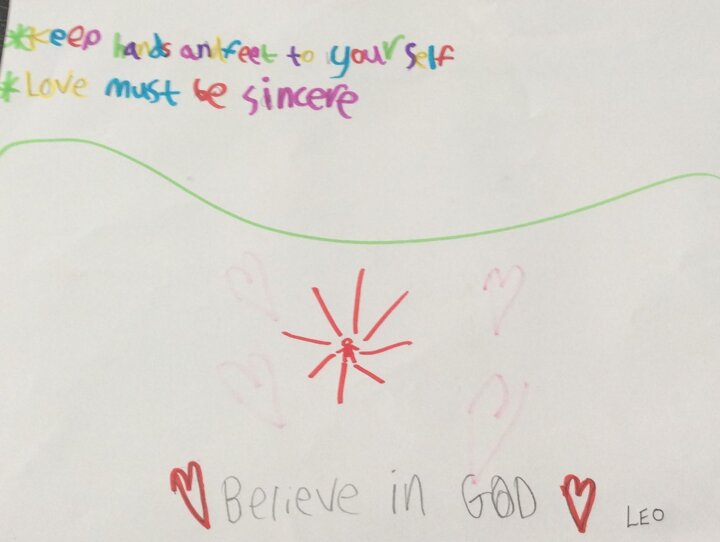 *Keep hands and feet to yourself
*Love must be sincere
Believe in GOD
LEO